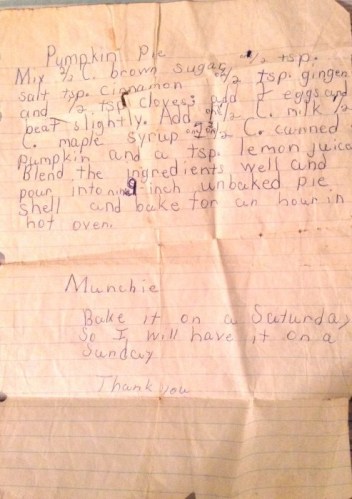 Pumpkin Pie
Mix ½ C. brown sugar, ½ tsp.
salt tsp. cinnamon ½ tsp. ginger
and ½ tsp cloves; add 2 eggs and
beat slightly. Add C. milk ½
C. maple syrup ½ C. canned
pumpkin and a tsp. lemon juice
Blend the ingredients well and
pour into nine 9 inch unbaked pie
shell and bake for an hour in
hot oven.
Munchie
Bake it on a Saturday
So I will have it on a
Sunday
Thank you